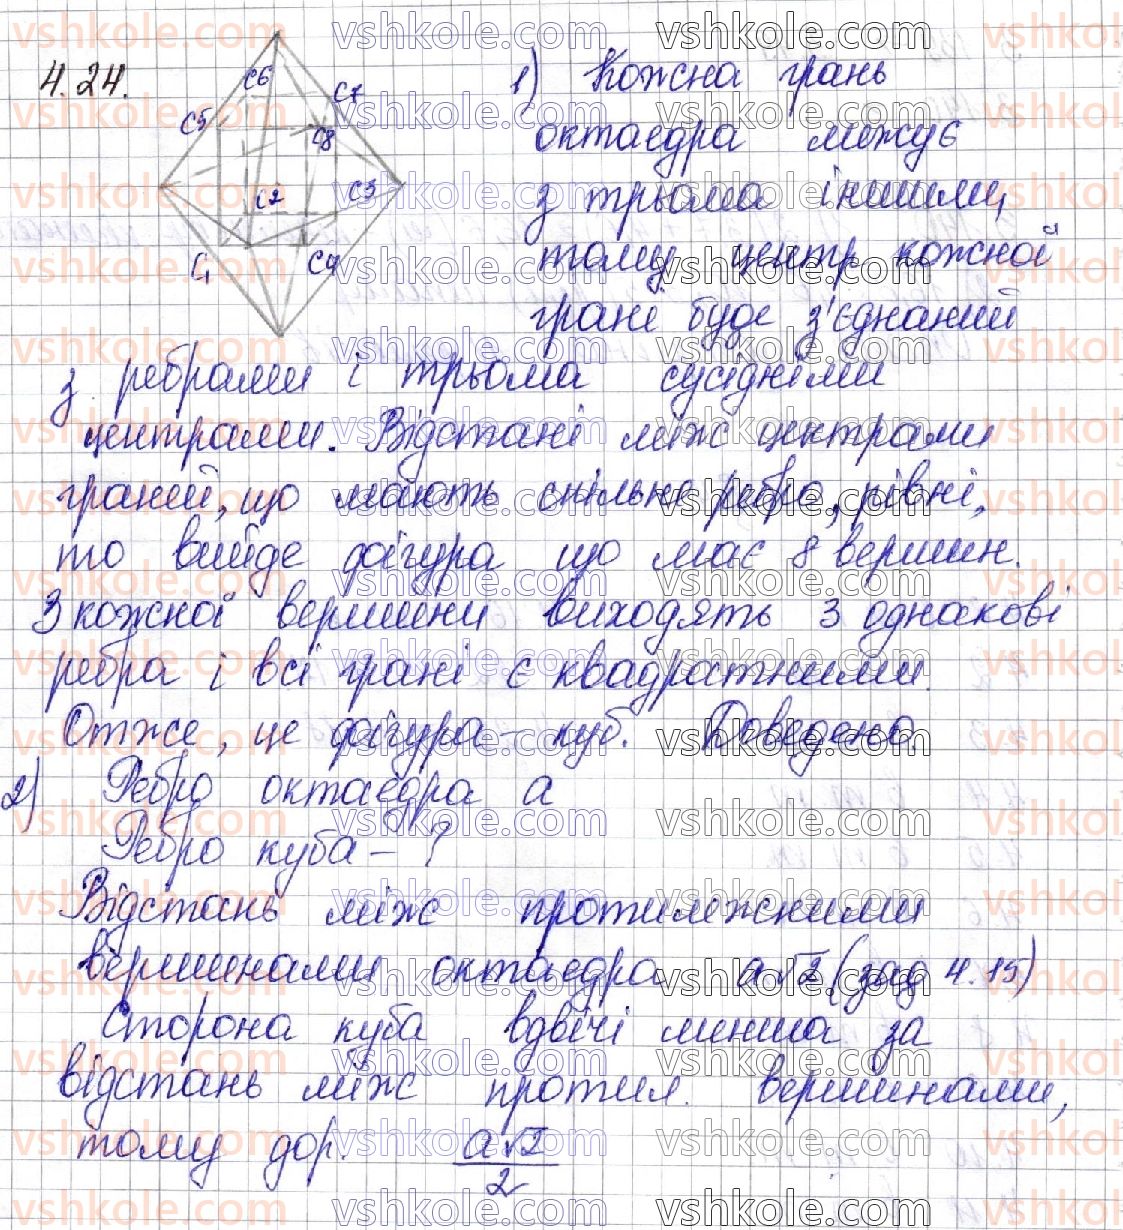 4.24.
C6
C7
C5
C8
C2
C3
C1
C4
1) Кожна грань
октаедра межує
з трьома іншими,
тому центр кожної
грані буде з'єднаний
з ребрами і трьома сусідніми
центрами. Відстані між центрами
граней, що мають спільне ребро, рівні,
то вийде фігура що має 8 вершин.
З кожної вершини виходять 3 однакові
ребра і всі грані є квадратними.
Отже, це фігура - куб. Доведено.
2) Ребро октаедра a
Ребро куба - ?
Відстань між протилежними
вершинами октаедра a√2 (зад 4.15)
Сторона куба вдвічі менша за
відстань між протил. вершинами,
тому дор. a√2/2